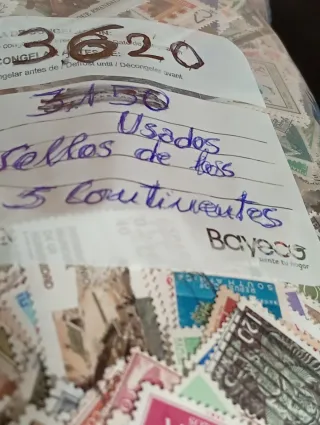 3620
CONGEL
gelar antes de / Defrost until / Décongeler avant
3,150
Usados
sellos de los
5 Continentes
Bayeco
SOUTH AFRICA
20